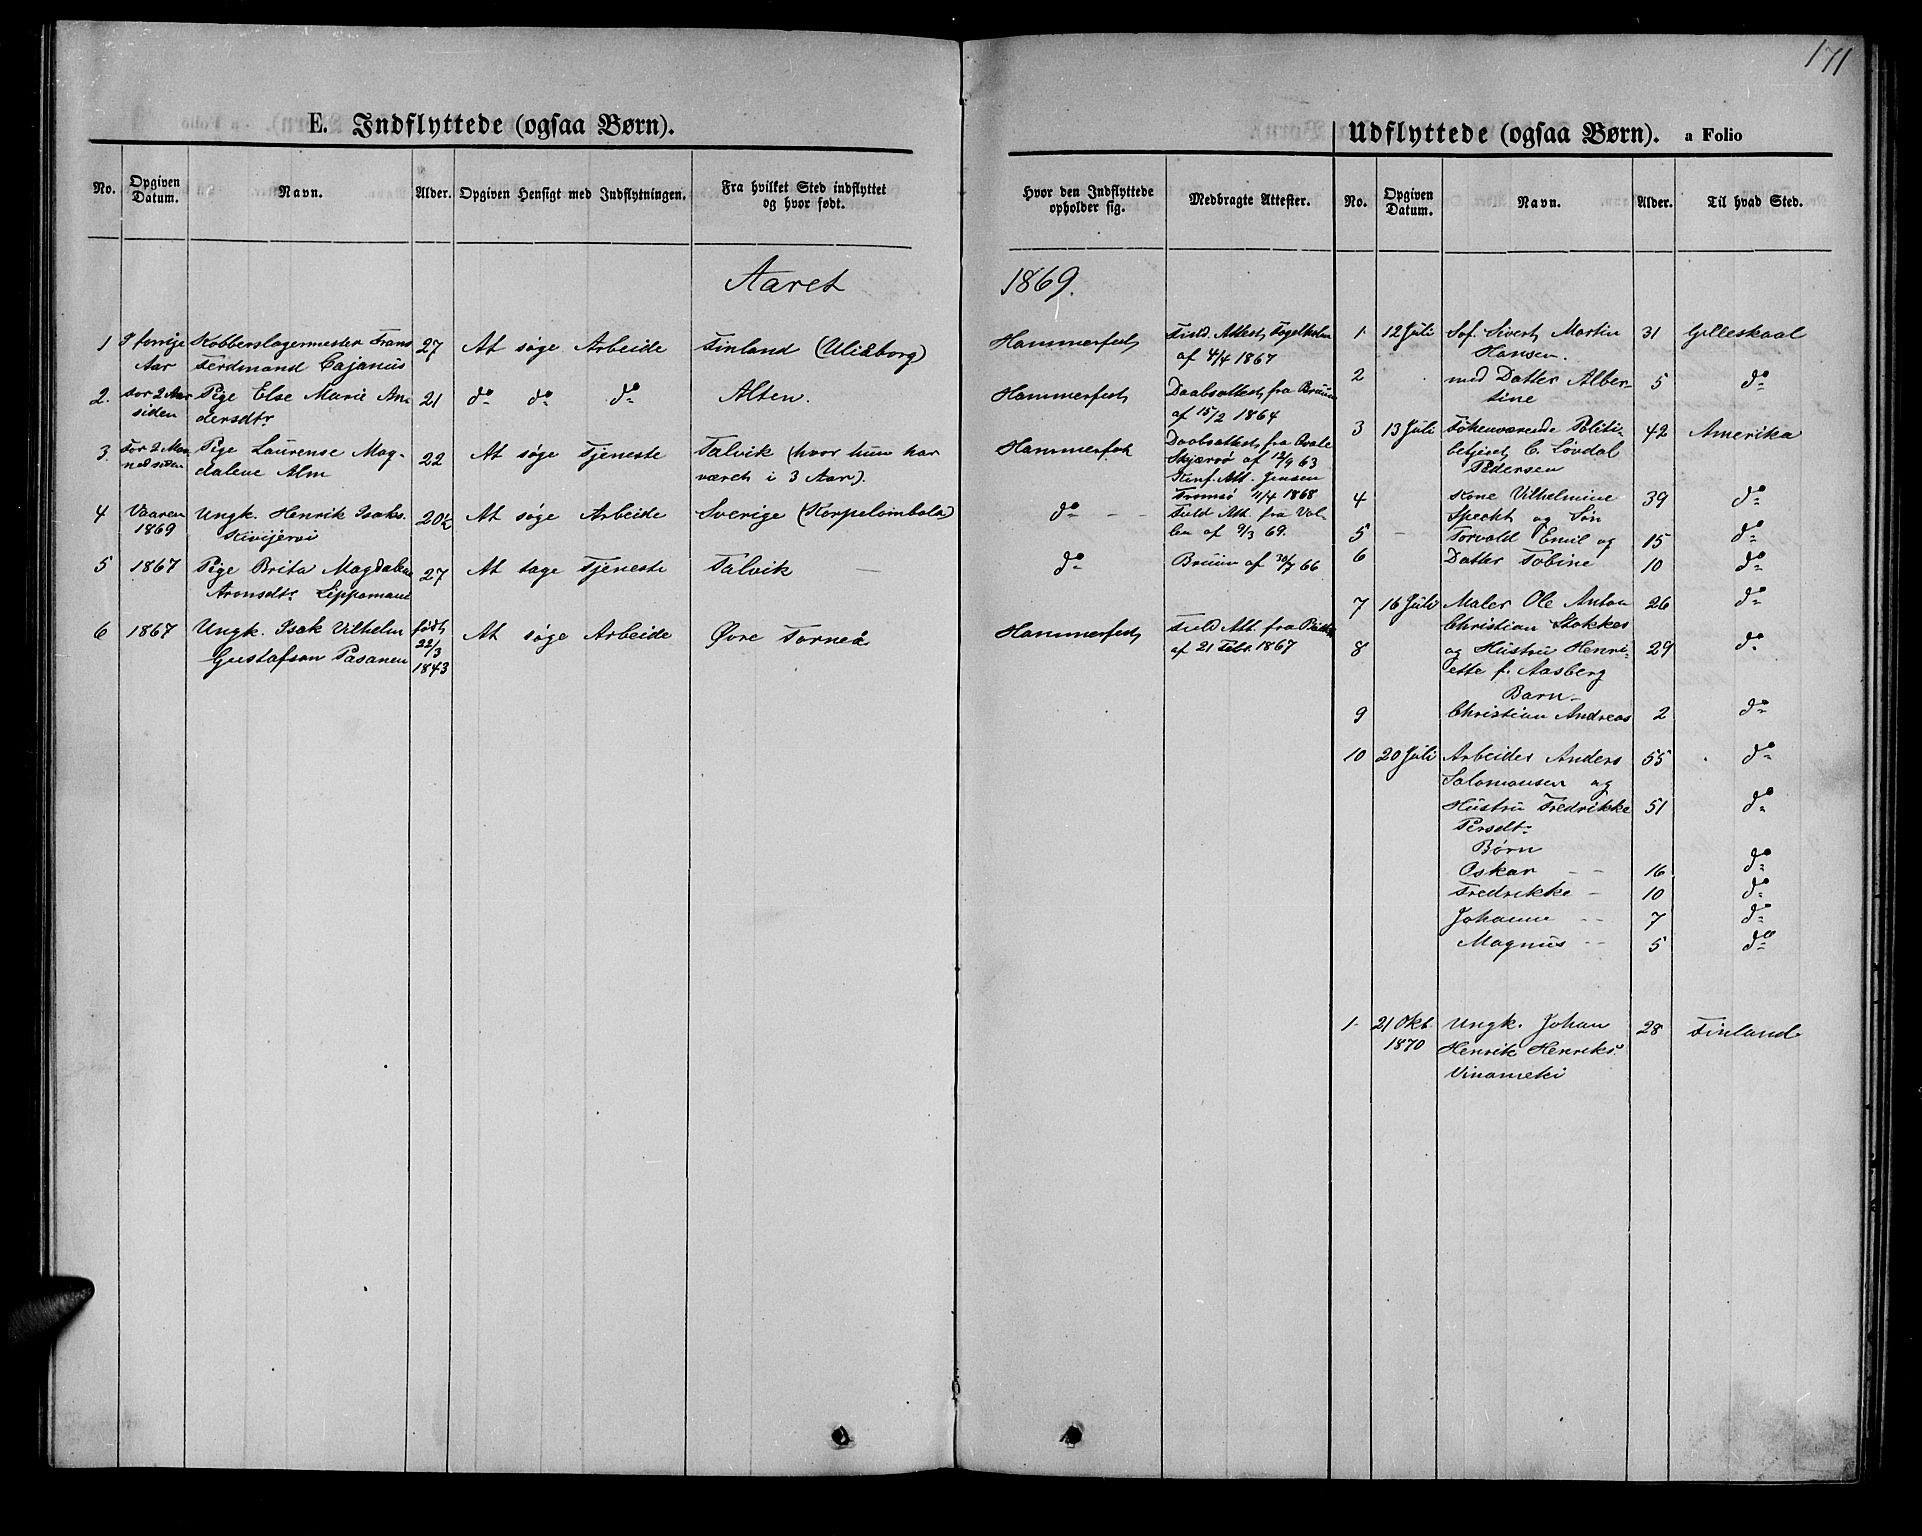 171
E. Indflyttede (ogsaa Børn).
No. Opgiven Datum. Navn. Alder. Opgiven Hensigt med Indflytningen. Fra hvilket Sted indflyttet og hvor født.
Hvor den Indflyttede opholder sig. Medbragte Attester.
Aaret 1869.
1 I forrige Kobberslagermester Frans 27 At søge Arbeide Finland (Uliåborg) Hammerfest
Aar Ferdinand Cajanus
Attest
af 4/4 1867
2. For 2 Aar Pige Else Marie An 21 do do do Alten. Hammerfest Daabsattest fra Bruun
siden dersdtr af 15/2 1864
3. For 2 Maa Pige Laurense Mag- 22 At søge Tjeneste Talvik (hvor hun har Hammerfest Daabsattest fra Hvale
ned siden dalene Alm været i 3 Aar). Skjærvø af 12/9 63
Konf. Att. Jensen
Tromsø 11/4 1868
4 Vaaren Ungk. Henrik Isaks. 20½ At søge Arbeide Sverige (Korpelombola) do Fuld Att. fra
1869 Kivijervi af 9/3 69.
5 1867 Pige Brita Magdalene 27 At tage Tjeneste Talvik — do Bruun af 30/7 66
Aronsdtr Lippomani
6 1867 Ungk. Isak Vilhelm født At søge Arbeide Øvre Torneå Hammerfest Fuld Att. fra
Gustafson Pasanen 22/3 af 21 Febr. 1867
1843
Udflyttede (ogsaa Børn). a Folio
No. Opgiven Datum. Navn. Alder. Til hvad Sted.
1 12 Juli Sof. Sivert Martin 31 Gilleskaal
Hansen.
2 med Datter Alber- 5 do
tine
3 13 Juli Fhenværende Politi- 42 Amerika
betjent C. Løvdal
Pedersen
4 Kone Vilhelmine 39 do
Specht og Søn
5 - Torvald Emil og 15 do
6 Datter Tobine 10 do
7 16 Juli Maler Ole Anton 26 do
Christian Stokkes
8 og Hustru Henri- 29 do
ette f. Aasberg
Barn -
9 Christian Andreas 2 do
10 20 Juli Arbeider Anders 55 do
Salomonsen og
Hustru Fredrikke 51 do
Persdt.
Børn
Oskar - - 16 do
Fredrikke - 10 do
Johanne - - 7 do
Magnus - - 5 do
1- 21 Okt. Ungk. Johan 28 Finland
1870 Henrik Henriks.
Vinameki